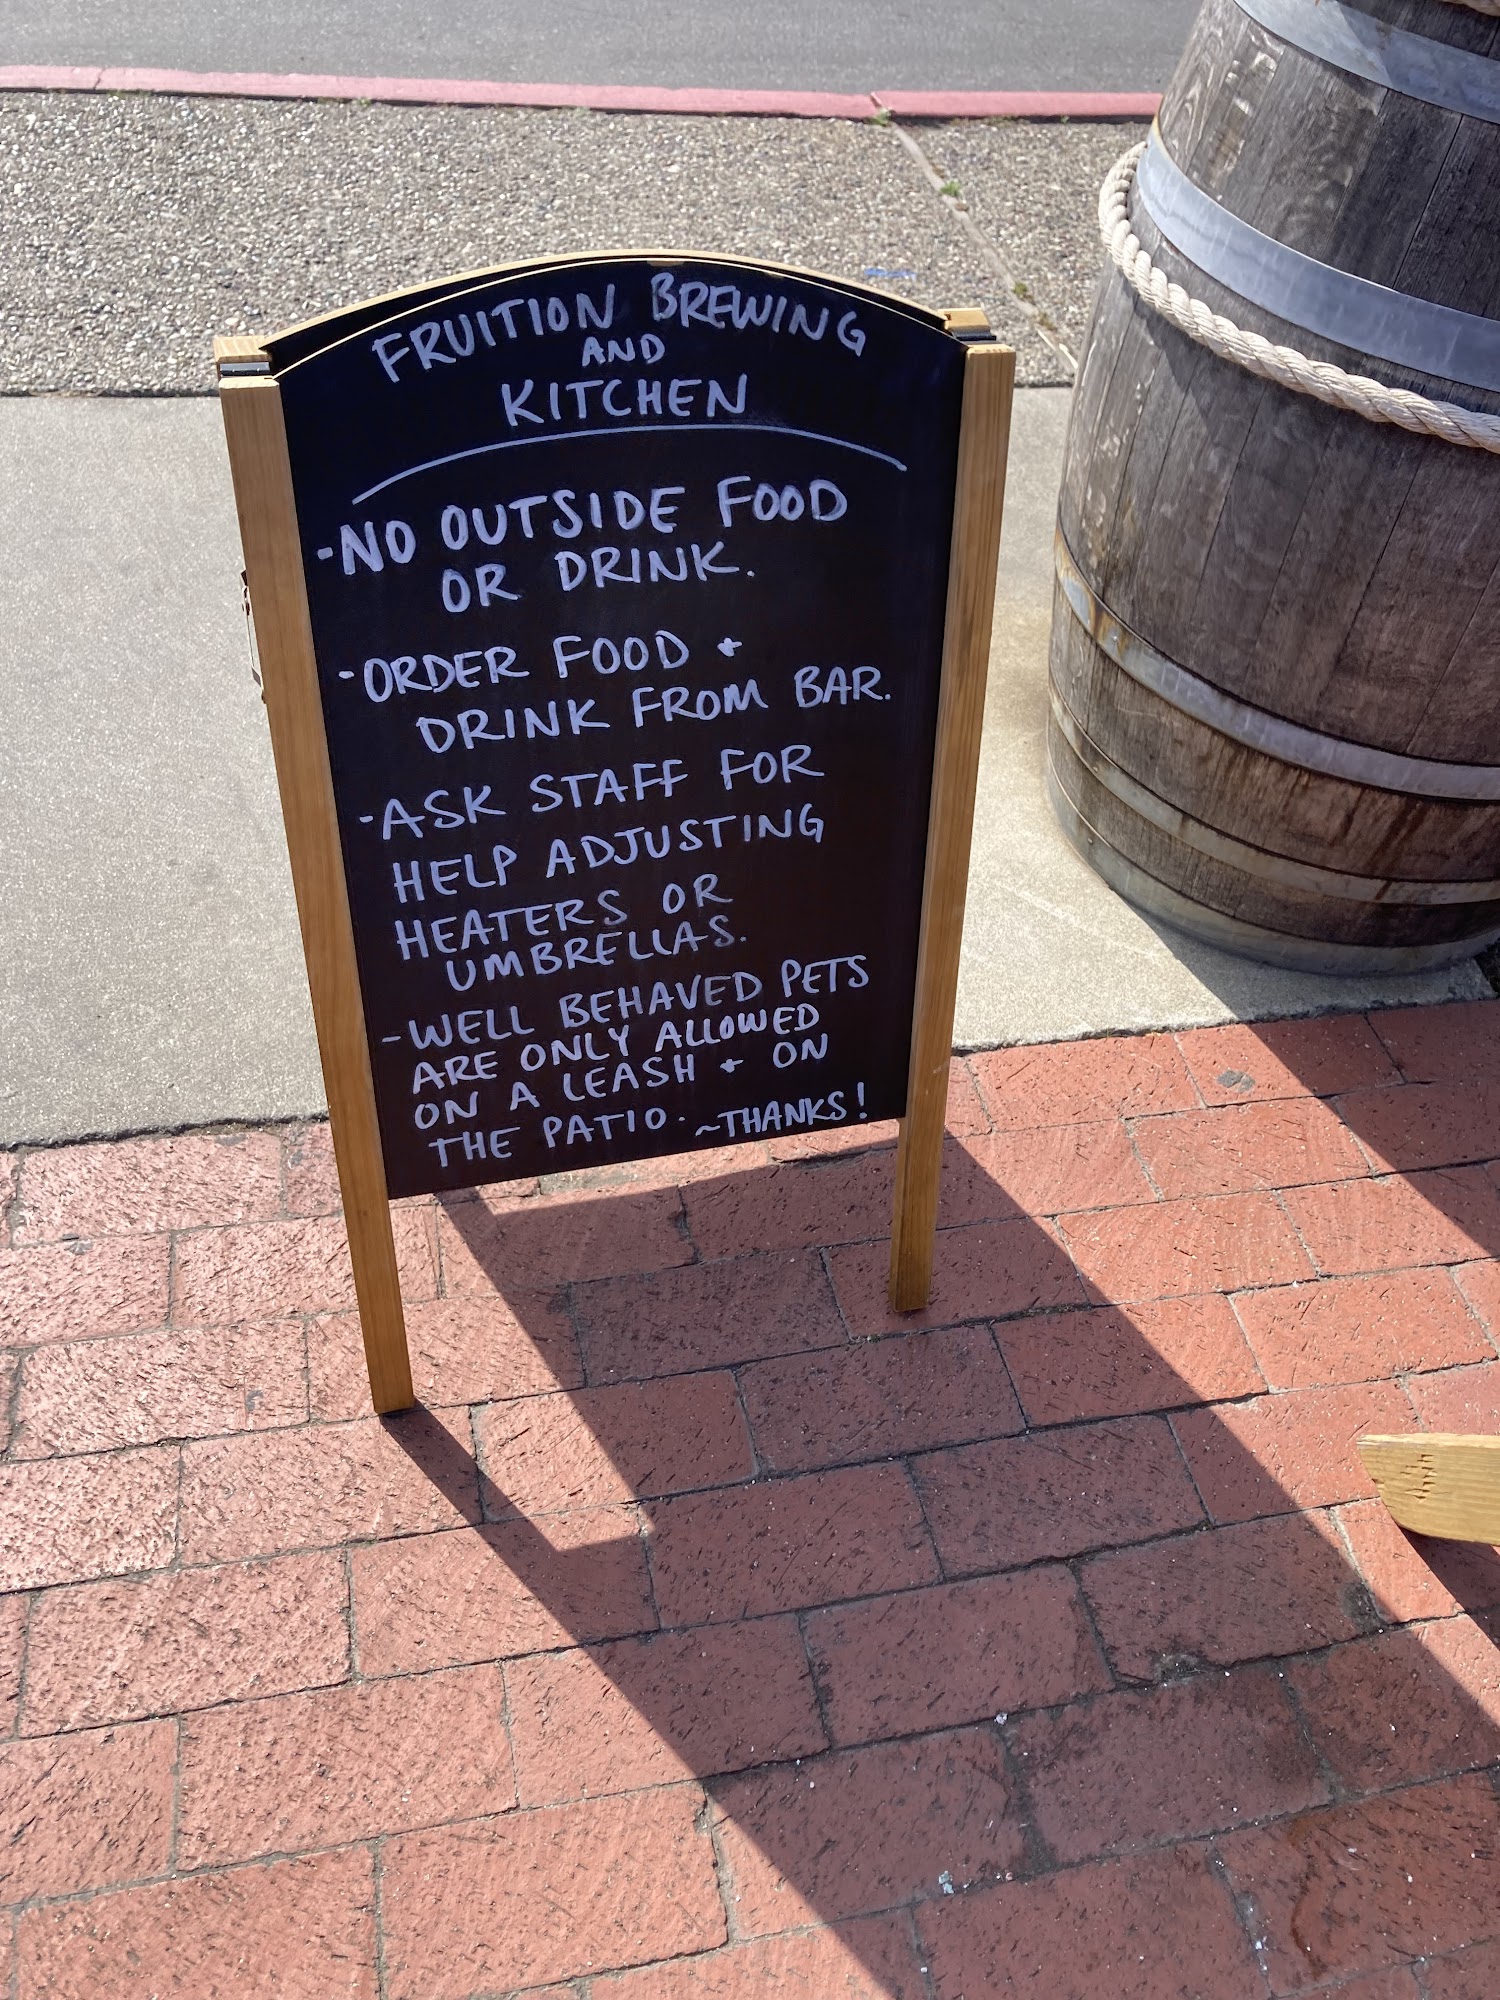 FRUITION BREWING
AND
KITCHEN
-NO OUTSIDE FOOD
OR DRINK.
-ORDER FOOD +
DRINK FROM BAR.
-ASK STAFF FOR
HELP ADJUSTING
HEATERS OR
UMBRELLAS.
-WELL BEHAVED PETS
ARE ONLY ALLOWED
ON A LEASH + ON
THE PATIO. ~THANKS!